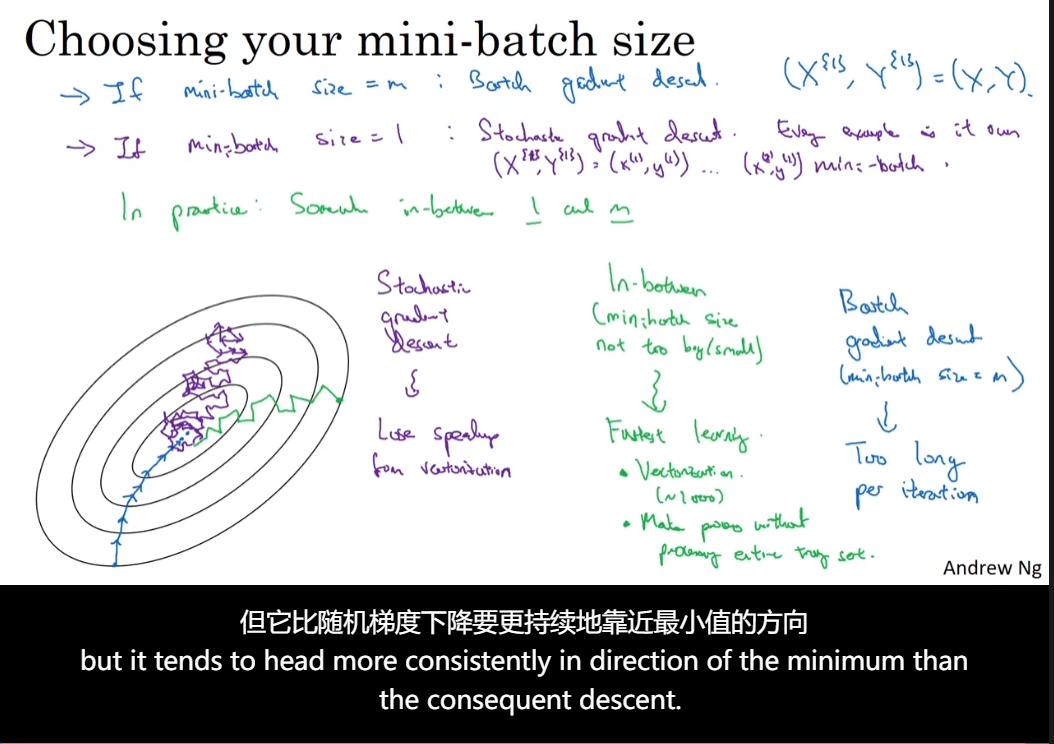 Choosing your mini-batch size
→ If mini-batch size = m : Batch gradient descent. (X^{1}, Y^{1}) = (X, Y).
→ If mini-batch size = 1 : Stochastic gradient descent. Every example is it own
(X^{1}, Y^{1}) = (x^(1), y^(1)) ... mini-batch.
In practice: Somewhere in-between 1 and m
Stochastic
gradient
descent
Lose speedup
from vectorization
In-between
(mini-batch size
not too big/small)
Fastest learning.
• Vectorization.
(~1000)
• Make progress without
processing entire training set.
Batch
gradient descent
(mini-batch size = m)
Too long
per iteration
Andrew Ng
但它比随机梯度下降要更持续地靠近最小值的方向
but it tends to head more consistently in direction of the minimum than
the consequent descent.